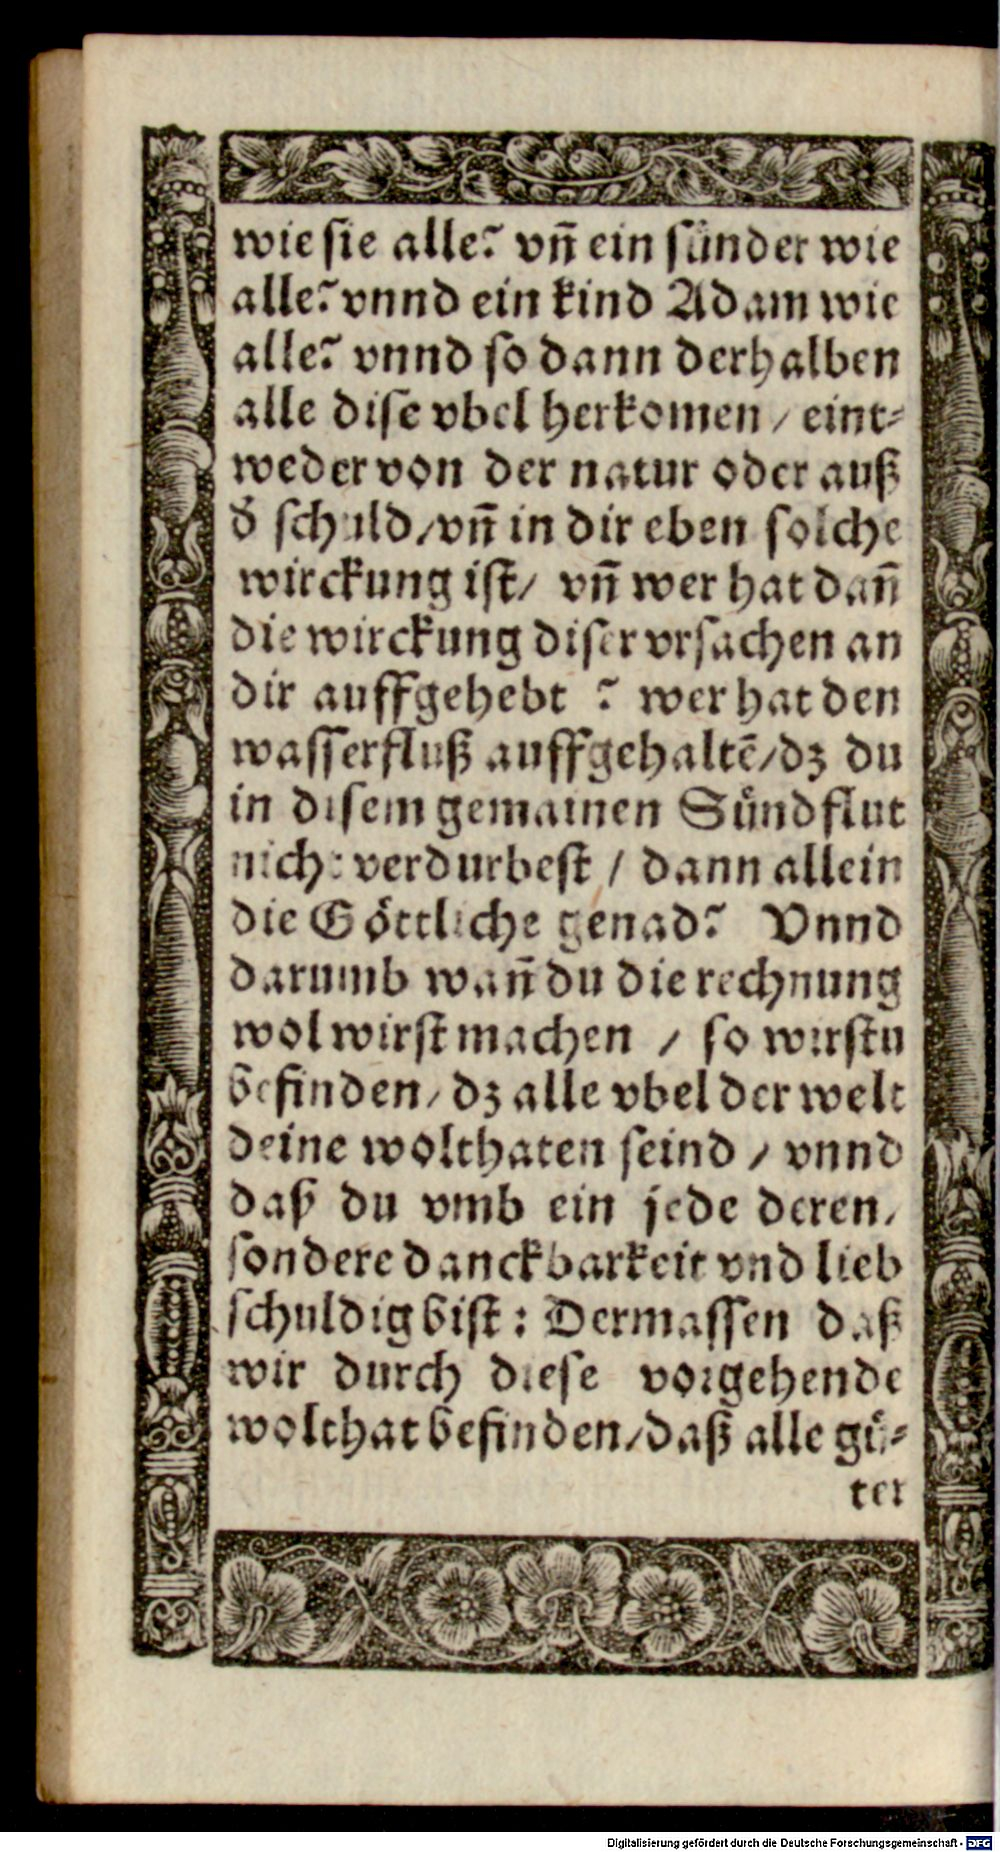 wie sie alle? vñ ein sünder wie
alle? vnnd ein kind Adam wie
alle? vnnd so dann derhalben
alle dise vbel herkomen / eint⸗
weder von der natur oder auß
d̕ schuld / vñ in dir eben solche
wirckung ist / vñ wer hat dañ
die wirckung diser vrsachen an
dir auffgehebt ? wer hat den
wasserfluß auffgehaltẽ / dz du
in disem gemainen Sündflut
nicht verdurbest / dann allein
die Göttliche genad? Vnnd
darumb wañ du die rechnung
wol wirst machen / so wirstu
befinden / dz alle vbel der welt
deine wolthaten seind / vnnd
daß du vmb ein jede deren /
sondere danckbarkeit vnd lieb
schuldig bist : Dermassen daß
wir durch diese vorgehende
wolthat befinden / daß alle gü⸗
ter
Digitalisierung gefördert durch die Deutsche Forschungsgemeinschaft - DFG